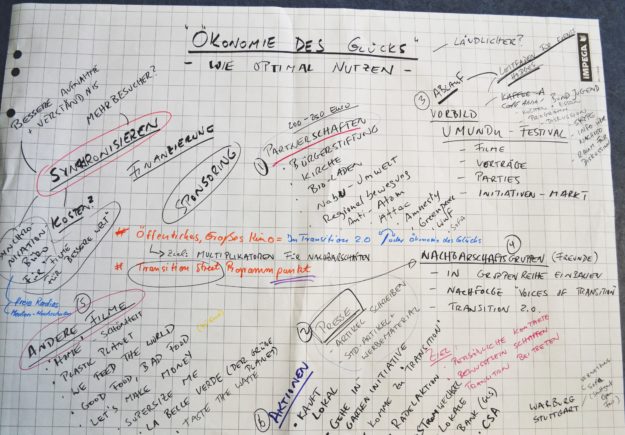 "ÖKONOMIE DES GLÜCKS"
- WIE OPTIMAL NUTZEN -
- LÄNDLICHER?
IMPEGA
BESSERE AUFNAHME
+ VERSTÄNDNIS
MEHR BESUCHER?
SYNCHRONISIEREN
FINANZIERUNG
SPONSORING
KOSTEN?
FÜR FILME
FÜR BESSERE WELT"
200-250 EURO
① PARTNERSCHAFTEN
• BÜRGERSTIFTUNG
• KIRCHE
• BIO-LADEN
• Nabu
• Umwelt
Regionalbewegung
Anti-Atom
• Attac
• Amnesty
Greenpeace
WWF
③ ABLAUF
VORBILD
UMUNDU-FESTIVAL
- FILME
- VORTRÄGE
- PARTIES
- INITIATIVEN-MARKT
* Öffentliches, Großes Kino = In Transition 2.0 / oder Ökonomie des Glücks
↳ Ziel: MULTIPLIKATOREN FÜR NACHBARSCHAFTEN
* Transition Street Programmpunkt
④
NACHBARSCHAFTSGRUPPEN (FREUNDE)
- IN GRUPPEN REIHE EINBAUEN
- NACHFOLGE VOICES OF TRANSITION
- TRANSITION 2.0.
ZIEL
PERSÖNLICHE KONTAKTE
BEWUSSTSEIN SCHAFFEN
TRANSITION BEITRETEN
WARBURG
STUTTGART/
⑤
ANDERE FILME
• "HOME"
• PLASTIC PLANET
• WE FEED THE WORLD
• GOOD FOOD, BAD FOOD
• LET'S MAKE MONEY
• SUPERSIZE ME
• LA BELLE VERDE (DER GRÜNE PLANET)
• TASTE THE WASTE
② PRESSE
• ARTIKEL SCHREIBEN
STD. ARTIKEL +
WERBEMATERIAL
⑥ AKTIONEN
• KAUFT LOKAL
• GEHE IN GARTENINITIATIVE
• KOMME ZU "TRANSITION"
• RADELAKTION
• STROMWECHSEL
• LOKALE BANK (GLS)
• CSA